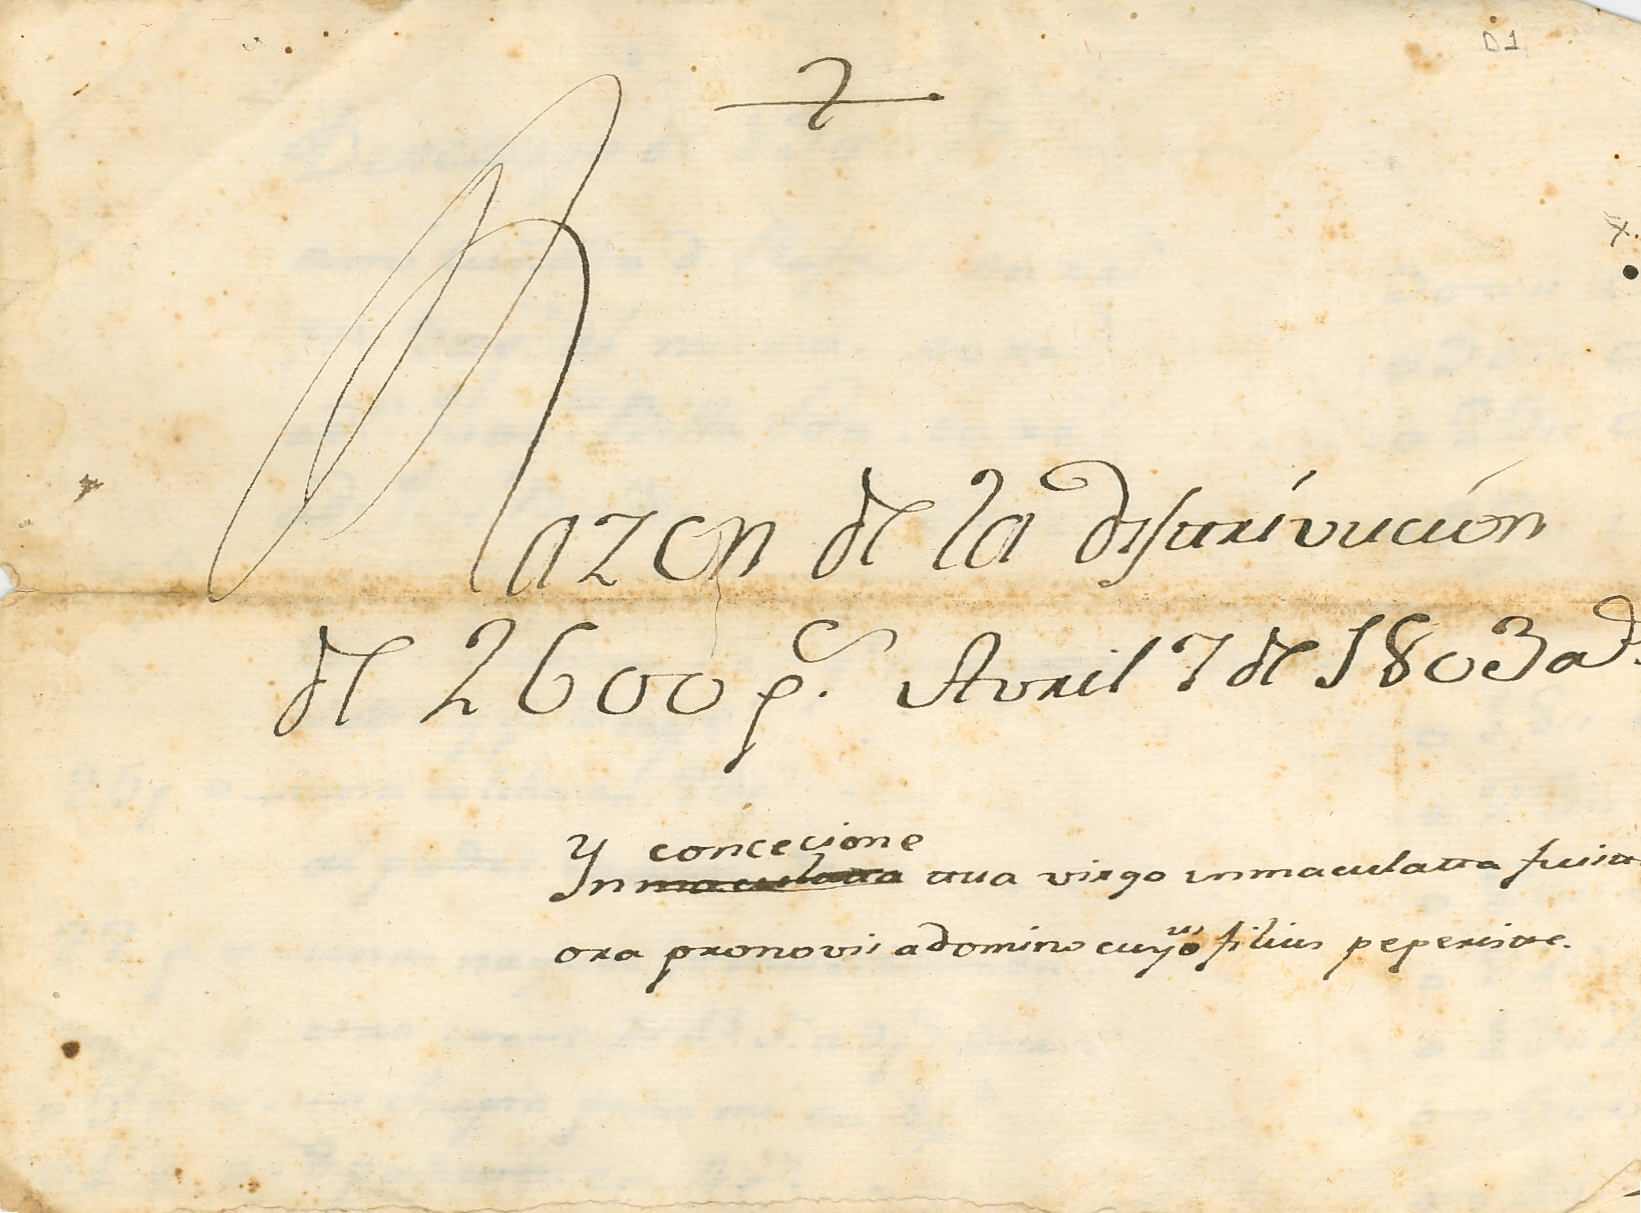 D1
Razon de la distrivución
de 2600 p.s Avril 7 de 1803 a.s
concecione
Yn inmaculatta ttua virgo inmaculatta fuistt
ora pronovis adomino cuyo us filius peperistte.